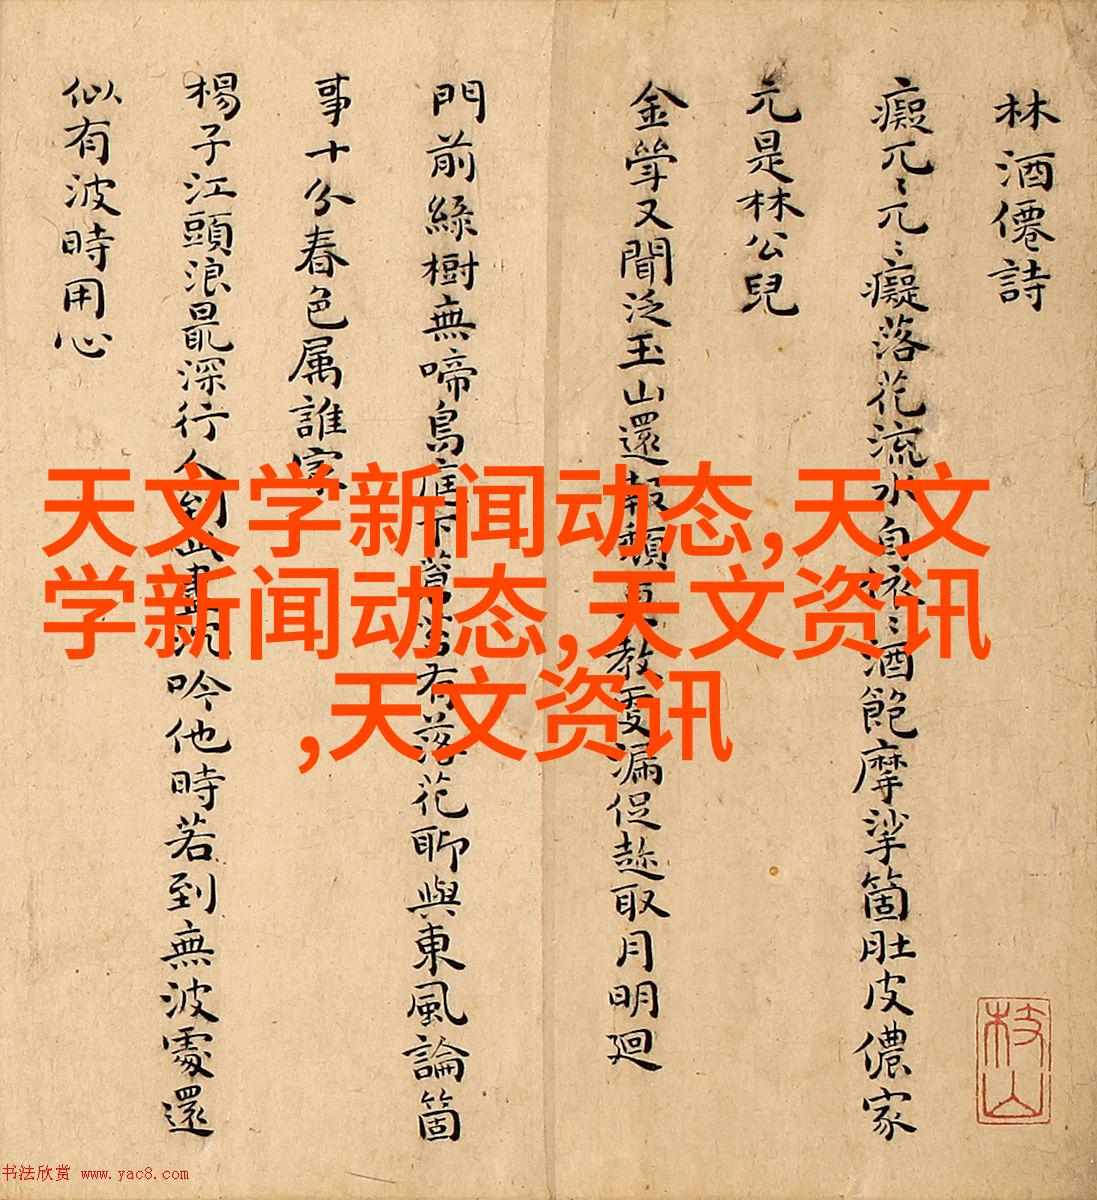 林酒僊詩
癡兀〻兀〻癡落花流水自依〻酒飽摩挲箇肚皮儂家
元是林公兒
金斝又聞泛玉山還報頹莫教更漏促趂取月明廻
門前綠樹無啼鳥庭下蒼苔有落花聊與東風論箇
事十分春色属誰家
楊子江頭浪最深行人到此盡沉吟他時若到無波處還
似有波時用心
枝山
天文学新闻动态,天文
学新闻动态,天文资讯
,天文资讯
书法欣赏 www.yac8.com